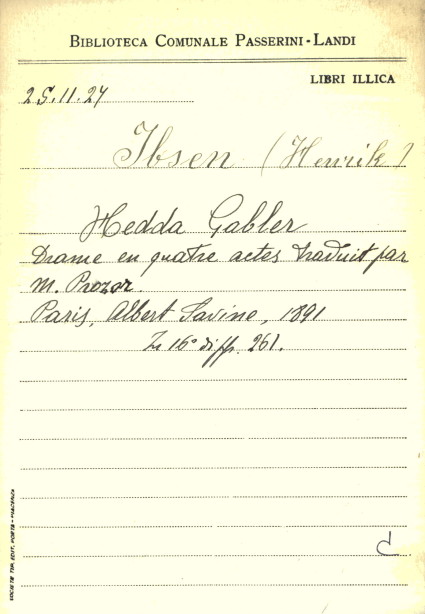 BIBLIOTECA COMUNALE PASSERINI-LANDI
LIBRI ILLICA
2 S. 11. 27
Ibsen (Henrik)
Hedda Gabler
Drame en quatre actes traduit par
M. Prozor.
Paris, Albert Savine, 1891
In 16° di pp. 261.
SOCIETÀ TIP. EDIT. PORTA - PIACENZA